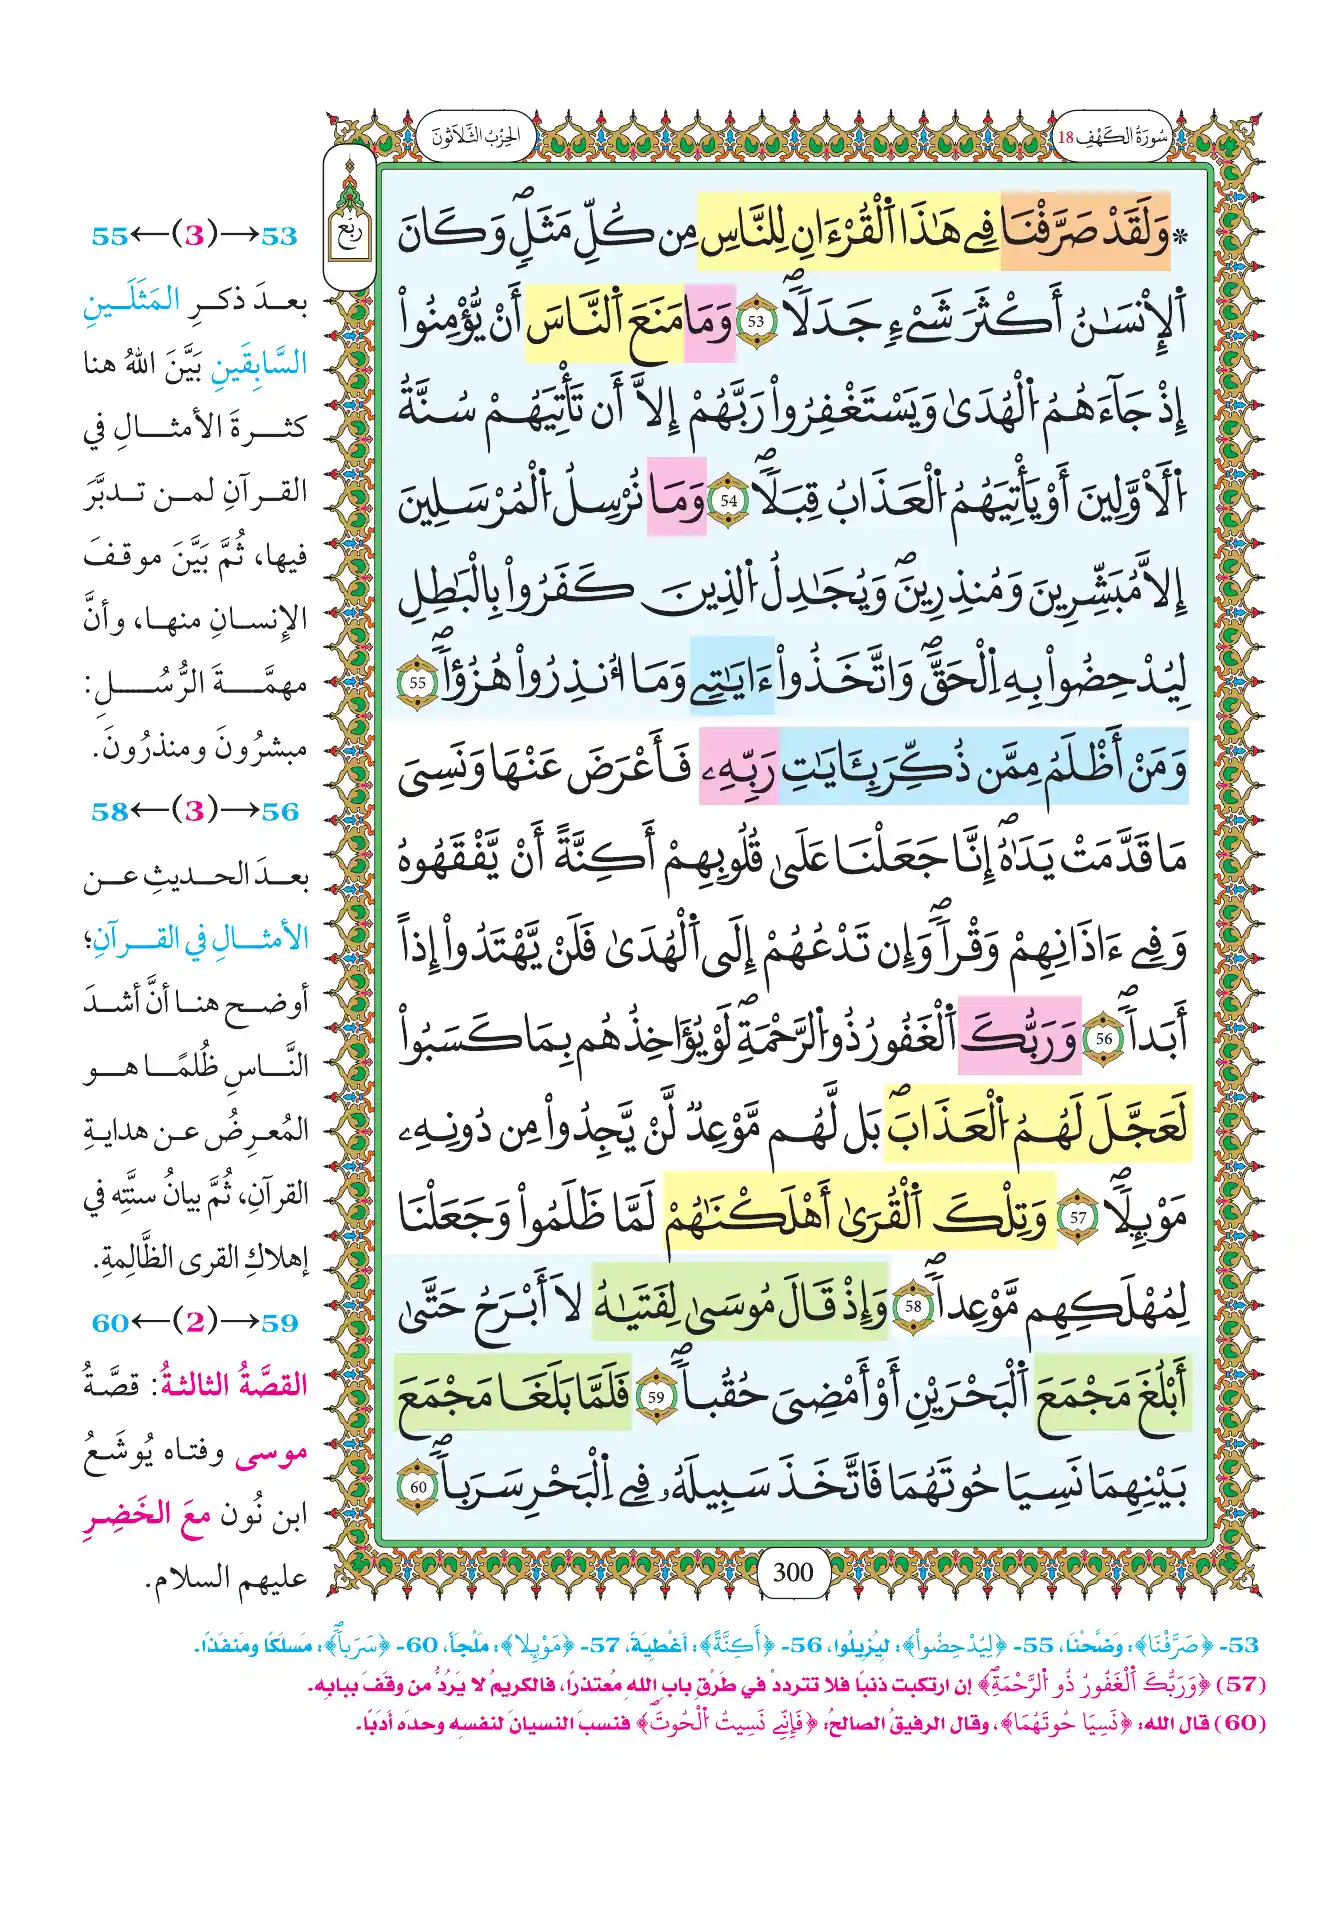 سُورَةُ الكَهْفِ 18
الحِزْبُ الثَّلَاثُونَ
رُبُع
* وَلَقَدْ صَرَّفْنَا فِے هَٰذَا اَ۬لْقُرْءَانِ لِلنَّاسِ مِن كُلِّ مَثَلٖۖ وَكَانَ
اَ۬لِانسَٰنُ أَكْثَرَ شَےْءٖ جَدَلاٗۖ 53 وَمَا مَنَعَ اَ۬لنَّاسَ أَنْ يُّؤْمِنُواْ
إِذْ جَآءَهُمُ اُ۬لْهُدَىٰ وَيَسْتَغْفِرُواْ رَبَّهُمْ إِلَّا أَن تَأْتِيَهُمْ سُنَّةُ
اُ۬لَاوَّلِينَ أَوْ يَأْتِيَهُمُ اُ۬لْعَذَابُ قِبَلاٗۖ 54 وَمَا نُرْسِلُ اُ۬لْمُرْسَلِينَ
إِلَّا مُبَشِّرِينَ وَمُنذِرِينَۖ وَيُجَٰدِلُ اُ۬لذِينَ كَفَرُواْ بِالْبَٰطِلِ
لِيُدْحِضُواْ بِهِ اِ۬لْحَقَّۖ وَاتَّخَذُواْ ءَايَٰتِے وَمَا أُنذِرُواْ هُزُؤاٗۖ 55
وَمَنْ أَظْلَمُ مِمَّن ذُكِّرَ بِـَٔايَٰتِ رَبِّهِۦ فَأَعْرَضَ عَنْهَا وَنَسِيَ
مَا قَدَّمَتْ يَدَٰهُۖ إِنَّا جَعَلْنَا عَلَىٰ قُلُوبِهِمْ أَكِنَّةً أَنْ يَّفْقَهُوهُ
وَفِے ءَاذَانِهِمْ وَقْراٗۖ وَإِن تَدْعُهُمْ إِلَى اَ۬لْهُدَىٰ فَلَنْ يَّهْتَدُواْ إِذاً
أَبَداٗۖ 56 وَرَبُّكَ اَ۬لْغَفُورُ ذُو اُ۬لرَّحْمَةِۖ لَوْ يُؤَاخِذُهُم بِمَا كَسَبُواْ
لَعَجَّلَ لَهُمُ اُ۬لْعَذَابَۖ بَل لَّهُم مَّوْعِدٞ لَّنْ يَّجِدُواْ مِن دُونِهِۦ
مَوْئِلاٗۖ 57 وَتِلْكَ اَ۬لْقُرَىٰ أَهْلَكْنَٰهُمْ لَمَّا ظَلَمُواْ وَجَعَلْنَا
لِمُهْلَكِهِم مَّوْعِداٗۖ 58 وَإِذْ قَالَ مُوسَىٰ لِفَتَىٰهُ لَا أَبْرَحُ حَتَّىٰ
أَبْلُغَ مَجْمَعَ اَ۬لْبَحْرَيْنِ أَوْ أَمْضِيَ حُقُباٗۖ 59 فَلَمَّا بَلَغَا مَجْمَعَ
بَيْنِهِمَا نَسِيَا حُوتَهُمَا فَاتَّخَذَ سَبِيلَهُۥ فِے اِ۬لْبَحْرِ سَرَباٗۖ 60
300
53→(3)←55
بعدَ ذكرِ المَثَلَينِ
السَّابِقَينِ بَيَّنَ اللهُ هنا
كثرةَ الأمثالِ في
القرآنِ لمن تدبَّرَ
فيها، ثُمَّ بَيَّنَ موقفَ
الإنسانِ منها، وأنَّ
مهمَّةَ الرُّسُلِ:
مبشرُونَ ومنذرُونَ.
56→(3)←58
بعدَ الحديثِ عن
الأمثالِ في القرآنِ؛
أوضح هنا أنَّ أشدَ
النَّاسِ ظُلمًا هو
المُعرِضُ عن هدايةِ
القرآنِ، ثُمَّ بيانُ سنَّتِه في
إهلاكِ القرى الظَّالِمةِ.
59→(2)←60
القصَّةُ الثالثةُ: قصَّةُ
موسى وفتاه يُوشَعُ
ابن نُون معَ الخَضِرِ
عليهم السلام.
53- ﴿صَرَّفْنَا﴾: وَضَّحْنَا، 55- ﴿لِيُدْحِضُواْ﴾: ليُزِيلُوا، 56- ﴿أَكِنَّةً﴾: أغْطِيَةً، 57- ﴿مَوْئِلا﴾: مَلْجَأً، 60- ﴿سَرَباٗۖ﴾: مَسلَكًا ومَنفَذًا.
(57) ﴿وَرَبُّكَ اَ۬لْغَفُورُ ذُو اُ۬لرَّحْمَةِۖ﴾ إن ارتكبت ذنبًا فلا تترددْ في طَرْقِ بابِ اللهِ مُعتذرًا، فالكريمُ لا يَرُدُّ من وقَفَ ببابِه.
(60) قال الله: ﴿نَسِيَا حُوتَهُمَا﴾، وقال الرفيقُ الصالحُ: ﴿فَإِنِّے نَسِيتُ اُ۬لْحُوتَۖ﴾ فنسبَ النسيانَ لنفسِهِ وحدَه أدَبًا.